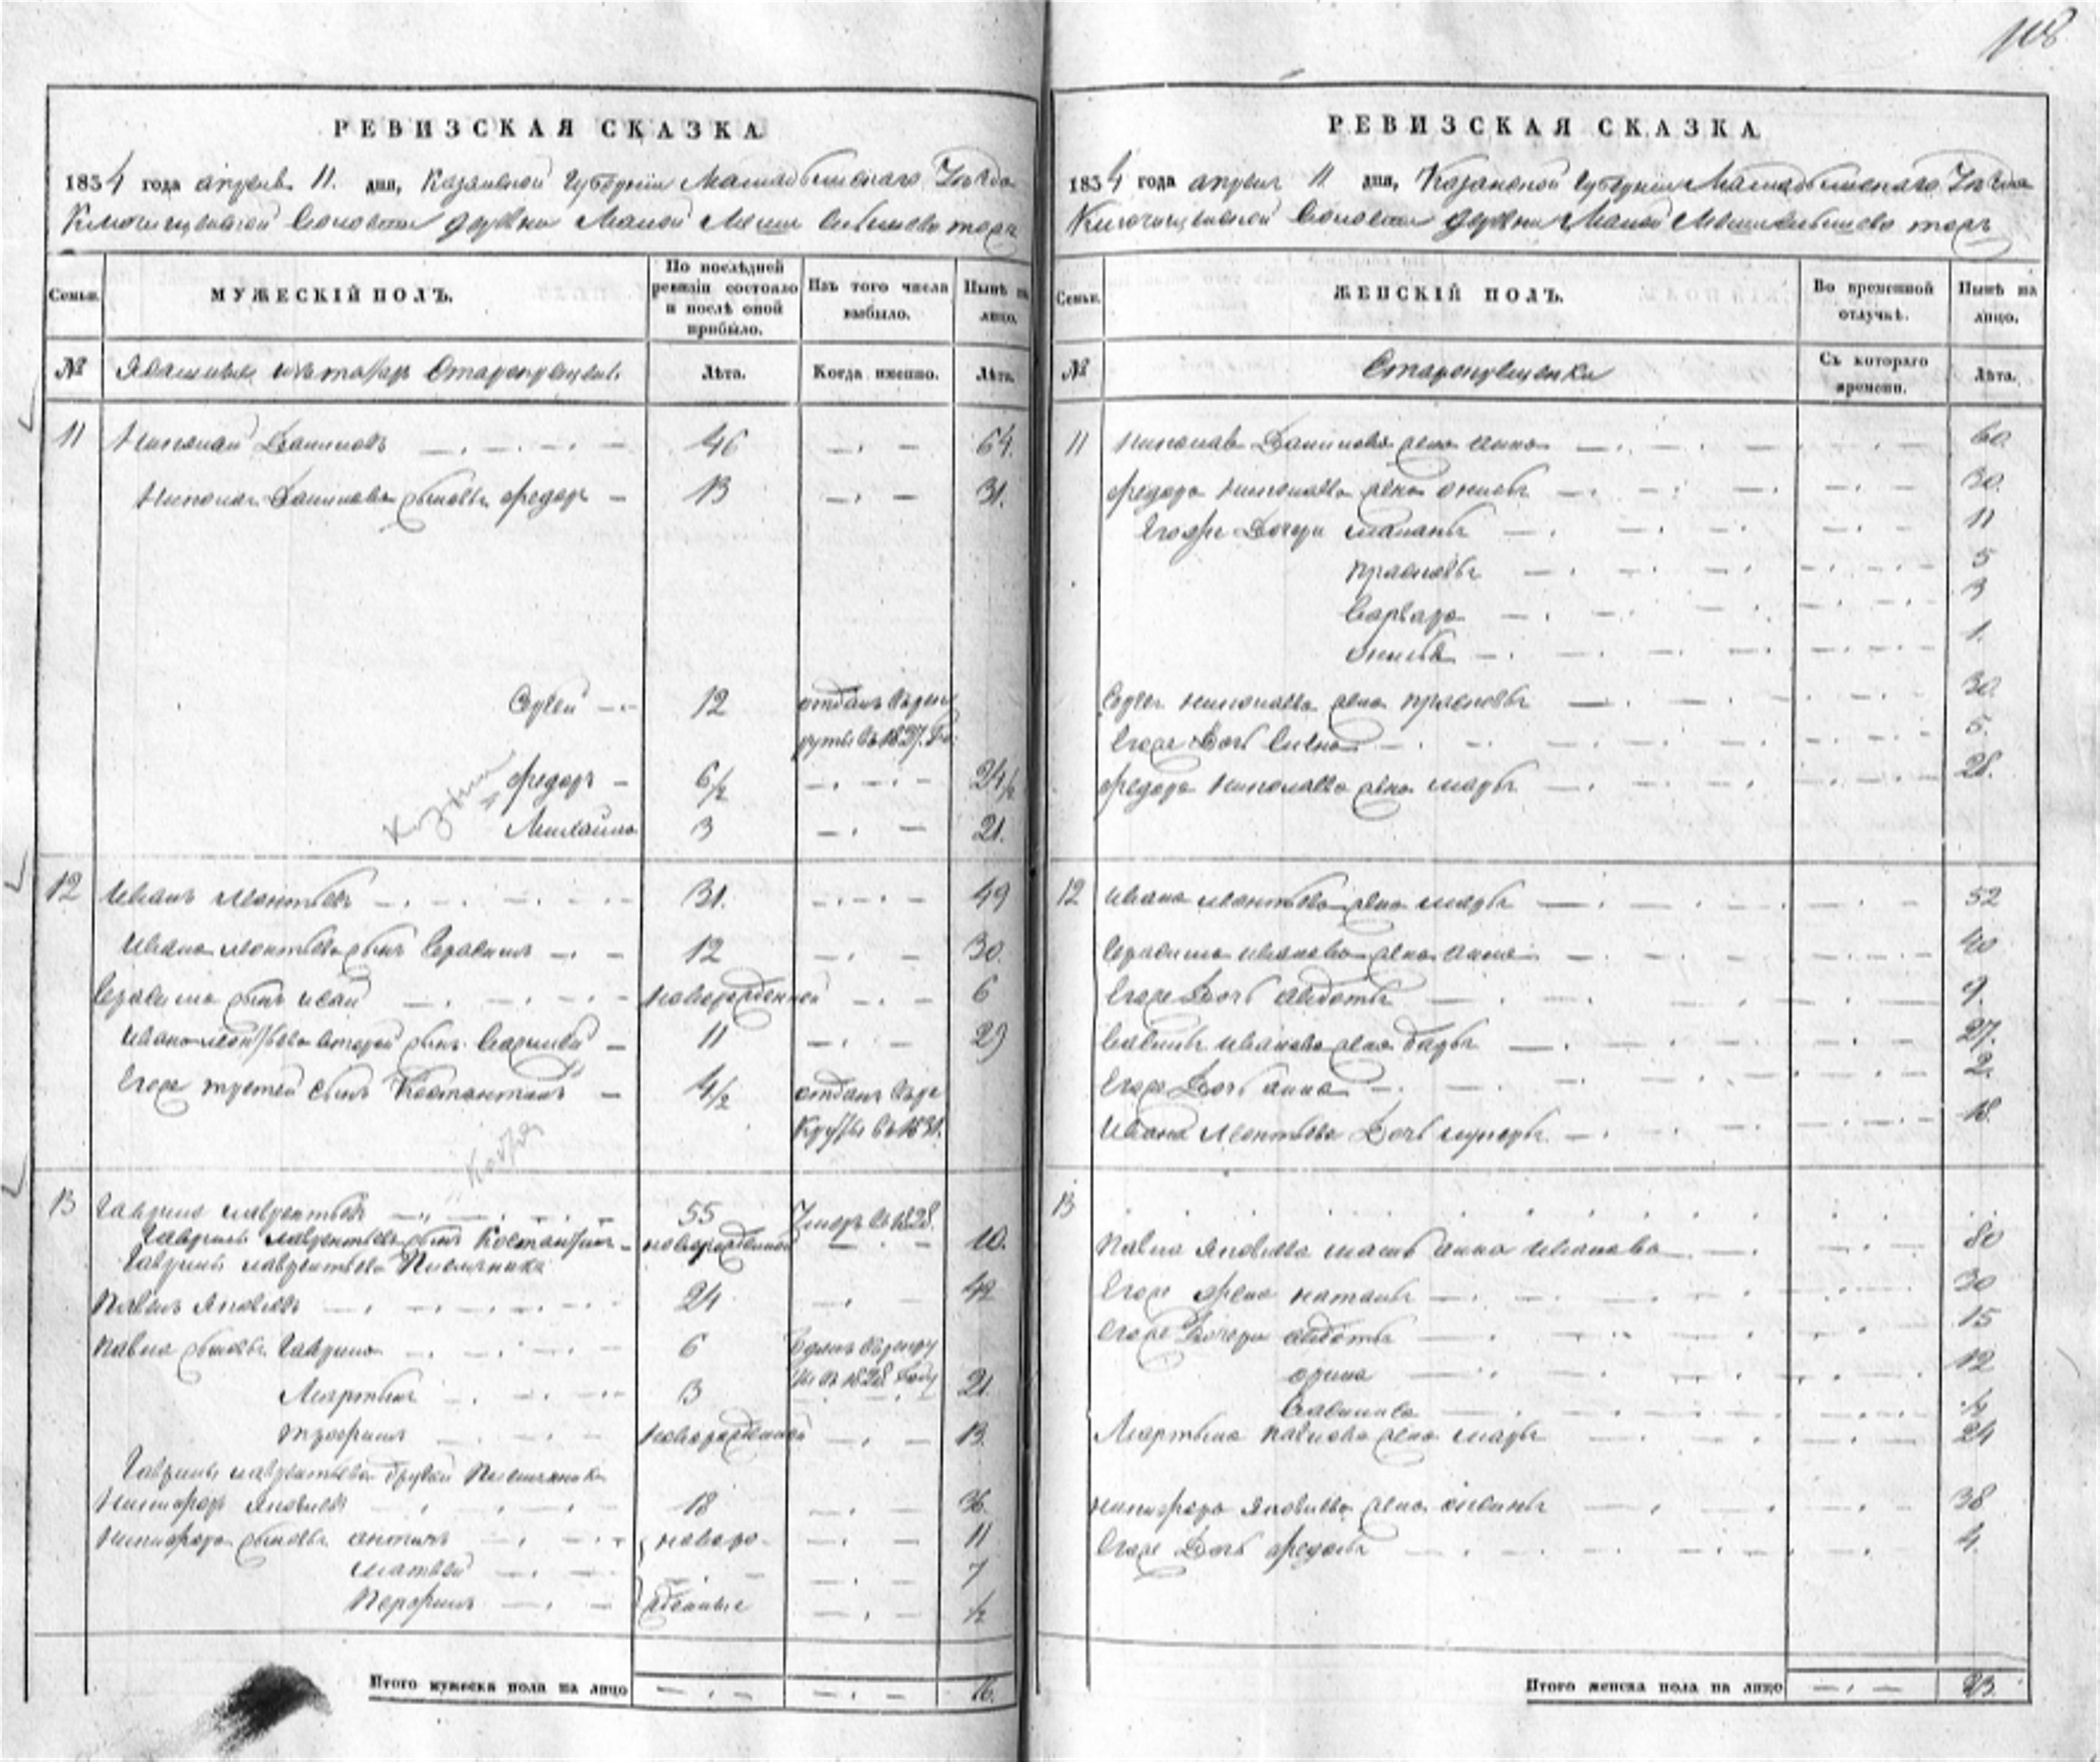 108
РЕВИЗСКАЯ СКАЗКА
1834 года апреля 11. дня, Казанской Губернии Мамадышского Уезда
Ключищенской волости деревни Малой Меши
Семьи.
МУЖЕСКІЙ ПОЛЪ.
По послѣдней ревизіи состояло и послѣ оной прибыло.
Изъ того числа выбыло.
Нынѣ на лицо.
№
Старокрещены
Лѣта.
Когда именно.
Лѣта.
11 Николай Даниловъ 46 64.
Николая Данилова сыновья Федоръ 13 31.
Сергей 12 отданъ въ рек
руты въ 1827. го
Федоръ 6½ 24½
Михайло 3 21.
12 Иванъ Леонтьевъ 31. 49
Ивана Леонтьева сынъ Герасимъ 12 30.
Герасима сынъ новорожденной 6
Ивана Леонтьева второй сынъ 11 29
Его же третей сынъ Костантинъ 4½ отданъ въ ре
круты въ 1831.
13 Гаврила Лаврентьевъ 55 Умеръ въ 1828.
Гаврилы Лаврентьева сынъ Костантинъ новорожденной 10.
Гаврилы Лаврентьева Племянникъ
Павелъ Яковлевъ 24 42
Павла сыновья Гаврило 6
въ 1828. году
Мартынъ 3 21
Трофимъ новорожденной 13.
Гаврилы Лаврентьева другой Племянникъ
Никифоръ Яковлевъ 18 36.
Никифора сыновья Антипъ новоро- 11
Матвей 7
Порфилъ жденные ½
Итого мужеска пола на лицо 16.
РЕВИЗСКАЯ СКАЗКА
1834 года апреля 11 дня, Казанской Губернии Мамадышского Уезда
Ключищенской волости деревни Малой Меши
Семьи.
ЖЕНСКІЙ ПОЛЪ.
Во временной отлучкѣ.
Нынѣ на лицо.
№
Старокрещенки
Съ котораго времени.
Лѣта.
11 Николая Данилова жена Анна 60.
Федора Николаева жена 30.
Его же Дочери Маланья 11
Прасковья 5
Варвара 3
1.
Сергея Николаева жена Прасковья 30.
Его же Дочь 5.
Федора Николаева жена Марья 28.
12 Ивана Леонтьева жена Марья 52
Герасима Иванова жена Анна 40
Его же Дочь Авдотья 9.
Иванова жена Дарья 27.
Его же Дочь Анна 2.
Ивана Леонтьева Дочь 18.
13
Павла Яковлева мать Анна Иванова 80
Его же жена Наталья 30
Его же Дочери Авдотья 15
Орина 12
½
Мартына Павлова жена Марья 24
Никифора Яковлева жена 38
Его же Дочь Федосья 4.
Итого женска пола на лицо 23.